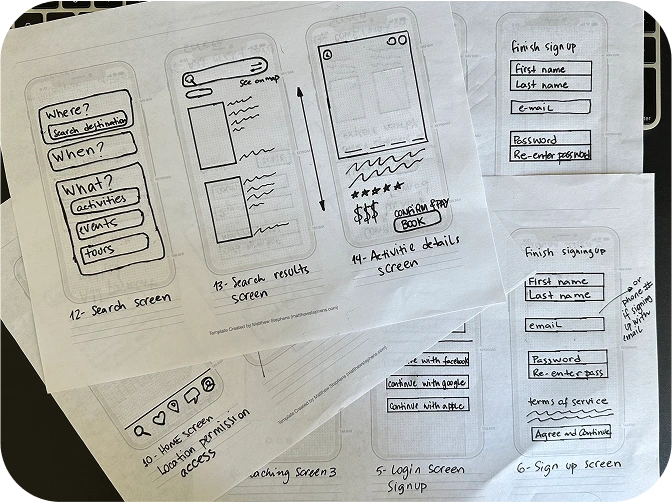 Where?
Search destination
When?
What?
activities
events
tours
12- Search screen
see on map
13- Search results
screen
$$$
CONFIRM & PAY
BOOK
14- Activitie details
screen
Template Created by Matthew Stephens (matthewstephens.com)
finish sign up
First name
Last name
e-mail
Password
Re-enter password
10- HOME screen
Location permission
access
Template Created by Matthew Stephens (matthewstephens.com)
aching screen 3
with facebook
continue with google
continue with apple
5- Login screen
signup
Finish signing up
First name
Last name
email
or
phone #
if signing
up with
email
Password
Re-enter pass
terms of service
Agree and Continue
6- Sign up screen